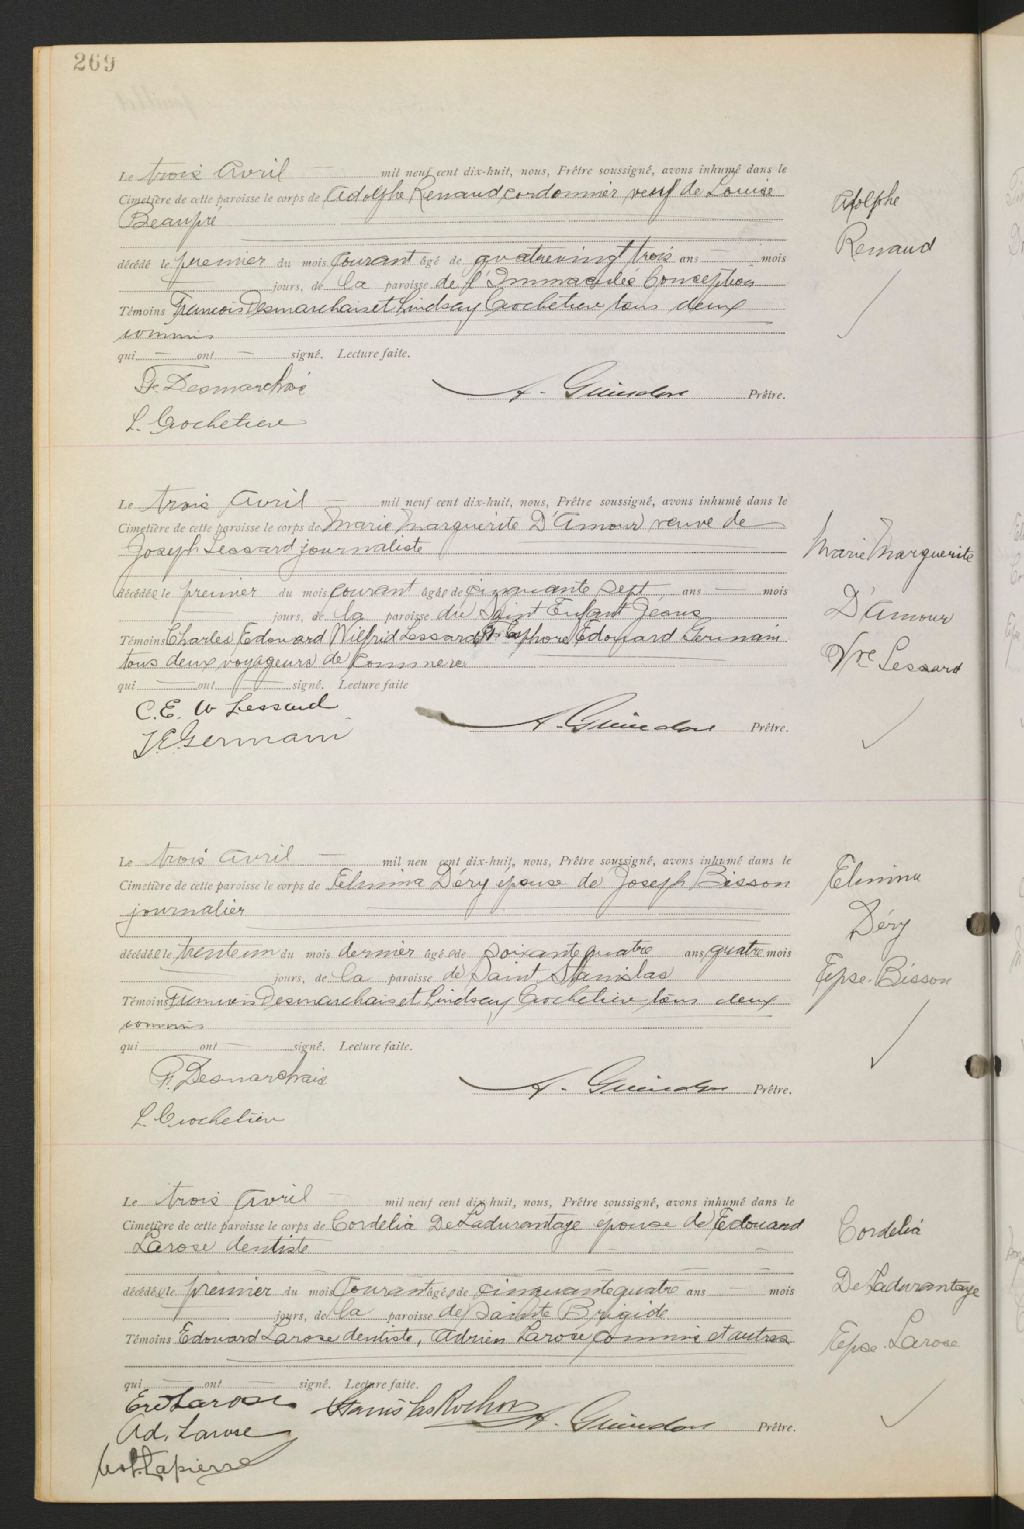 269
Le trois avril — mil neuf cent dix-huit, nous, Prêtre soussigné, avons inhumé dans le
Cimetière de cette paroisse le corps de Adolphe Renaud, cordonnier, veuf de Louise
Beaupré
décédé le premier du mois courant âgé de quatrevingt trois ans — mois
jours, de la paroisse de l'Immaculée Conception
Témoins François Desmarchais et Lindsay Crochetière tous deux
commis
qui — ont — signé. Lecture faite.
F. Desmarchais
A. Guindon Prêtre.
L. Crochetiere
Adolphe
Renaud
Le trois avril — mil neuf cent dix-huit, nous, Prêtre soussigné, avons inhumé dans le
Cimetière de cette paroisse le corps de Marie Marguerite D'Amour veuve de
Joseph Lessard journaliste
décédée le premier du mois courant âgée de cinquante sept ans — mois
jours, de la paroisse du Saint Enfant Jesus
Témoins Charles Edouard Wilfrid Lessard et Edouard Germain
tous deux voyageurs de commerce
qui — ont — signé. Lecture faite
C.E. W Lessard
A. Guindon Prêtre.
J.E. Germain
Marie Marguerite
D'Amour
Vve Lessard
Le trois avril — mil neu cent dix-huit, nous, Prêtre soussigné, avons inhumé dans le
Cimetière de cette paroisse le corps de Elmina Déry épouse de Joseph Bisson
journalier
décédée le trente un du mois dernier âgée de soixante quatre ans, quatre mois
jours, de la paroisse de Saint Stanislas
Témoins François Desmarchais et Lindsay Crochetière tous deux
commis
qui — ont — signé. Lecture faite.
F. Desmarchais
A. Guindon Prêtre.
L. Crochetiere
Elmina
Déry
Epse. Bisson
Le trois avril — mil neuf cent dix-huit, nous, Prêtre soussigné, avons inhumé dans le
Cimetière de cette paroisse le corps de Cordelia DeLadurantaye épouse de Edouard
Larose dentiste
décédée le premier du mois courant âgée de cinquante quatre ans — mois
jours, de la paroisse de Sainte Brigide
Témoins Edouard Larose dentiste, Adrien Larose commis et autres
qui — ont — signé. Lecture faite.
Ed Larose Stanislas Rochon A. Guindon Prêtre.
Ad. Larose
Lapierre
Cordelia
DeLadurantaye
Epse. Larose